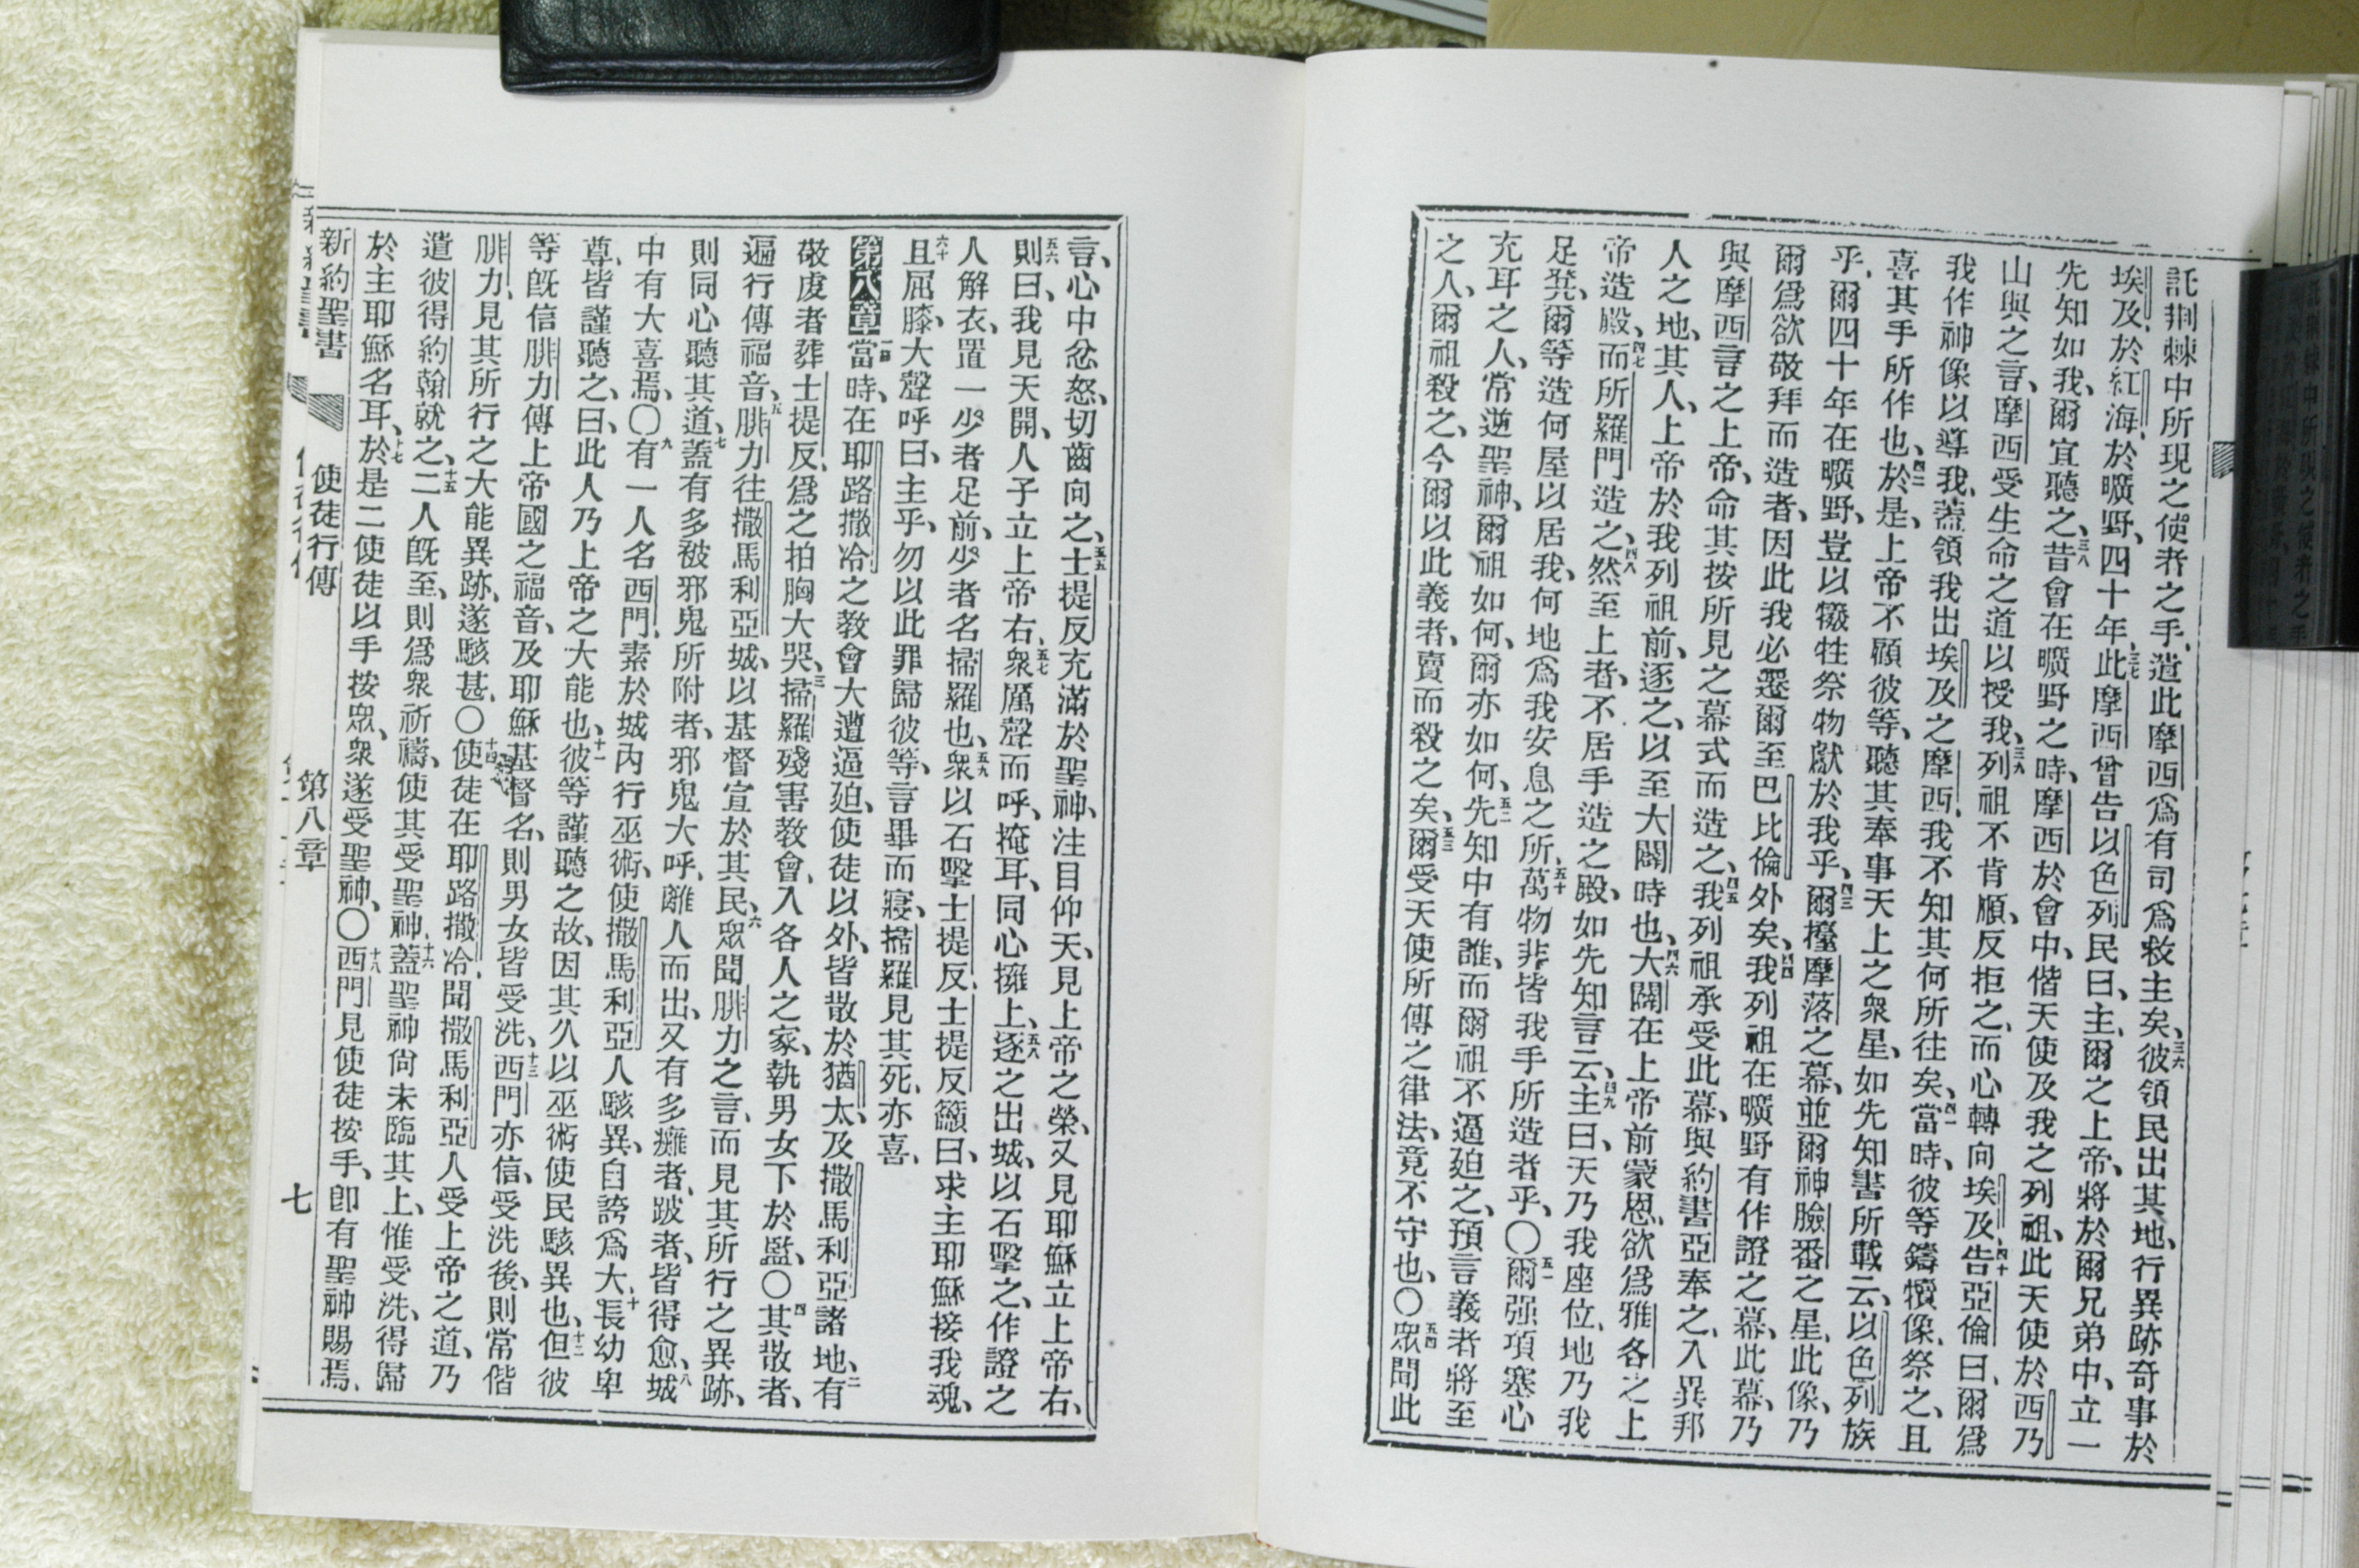 託荆棘中所現之使者之手、遣此摩西爲有司爲救主矣、三六彼領民出其地、行異跡奇事於
埃及、於紅海、於曠野、四十年、三七此摩西曾告以色列民曰、主、爾之上帝、將於爾兄弟中、立一
先知如我、爾宜聽之、三八昔會在曠野之時、摩西於會中、偕天使及我之列祖、此天使於西乃
山與之言、摩西受生命之道以授我、三九列祖不肯順、反拒之、而心轉向埃及、四十告亞倫曰、爾爲
我作神像以導我、蓋領我出埃及之摩西、我不知其何所往矣、四一當時、彼等鑄犢像、祭之、且
喜其手所作也、四二於是、上帝不願彼等、聽其奉事天上之衆星、如先知書所載云、以色列族
乎、爾四十年在曠野、豈以犧牲祭物獻於我乎、四三爾擡摩落之幕、並爾神臉番之星、此像、乃
爾爲欲敬拜而造者、因此我必遷爾至巴比倫外矣、四四我列祖在曠野有作證之幕、此幕、乃
與摩西言之上帝、命其按所見之幕式而造之、四五我列祖承受此幕、與約書亞奉之、入異邦
人之地、其人、上帝於我列祖前、逐之、以至大闢時也、四六大闢在上帝前蒙恩、欲爲雅各之上
帝造殿、四七而所羅門造之、四八然至上者、不居手造之殿、如先知言云、四九主曰、天乃我座位、地乃我
足凳、爾等造何屋以居我、何地爲我安息之所、五十萬物非皆我手所造者乎、〇五一爾强項塞心
充耳之人、常逆聖神、爾祖如何、爾亦如何、五二先知中有誰、而爾祖不逼廹之、預言義者將至
之人、爾祖殺之、今爾以此義者、賣而殺之矣、五三爾受天使所傳之律法、竟不守也、〇五四衆聞此
言、心中忿怒、切齒向之、五五士提反充滿於聖神、注目仰天、見上帝之榮、又見耶穌立上帝右、
五六則曰、我見天開、人子立上帝右、五七衆厲聲而呼、掩耳、同心擁上、五八逐之出城、以石擊之、作證之
人解衣、置一少者足前、少者名掃羅也、五九衆以石擊士提反、士提反籲曰、求主耶穌接我魂、
六十且屈膝、大聲呼曰、主乎、勿以此罪歸彼等、言畢而寢、掃羅見其死、亦喜、
第八章 一節當時、在耶路撒冷之教會大遭逼廹、使徒以外、皆散於猶太、及撒馬利亞諸地、二有
敬虔者葬士提反、爲之拍胸大哭、三掃羅殘害教會、入各人之家、執男女下於監、〇四其散者、
遍行傳福音、五腓力往撒馬利亞城、以基督宣於其民、六衆聞腓力之言、而見其所行之異跡、
則同心聽其道、七蓋有多被邪鬼所附者、邪鬼大呼、離人而出、又有多癱者、跛者、皆得愈、八城
中有大喜焉、〇九有一人名西門、素於城內行巫術、使撒馬利亞人駭異、自誇爲大、十長幼卑
尊、皆謹聽之、曰、此人乃上帝之大能也、十一彼等謹聽之故、因其久以巫術使民駭異也、十二但彼
等既信腓力傳上帝國之福音、及耶穌基督名、則男女皆受洗、十三西門亦信、受洗後、則常偕
腓力、見其所行之大能異跡、遂駭甚、〇十四使徒在耶路撒冷、聞撒馬利亞人受上帝之道、乃
遣彼得約翰就之、十五二人既至、則爲衆祈禱、使其受聖神、十六蓋聖神尙未臨其上、惟受洗、得歸
於主耶穌名耳、十七於是二使徒以手按衆、衆遂受聖神、〇十八西門見使徒按手、卽有聖神賜焉、
新約聖書 使徒行傳 第八章 七